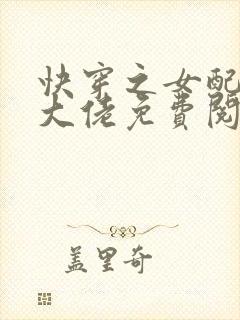 快穿之女配
大佬免费阅
盖里奇